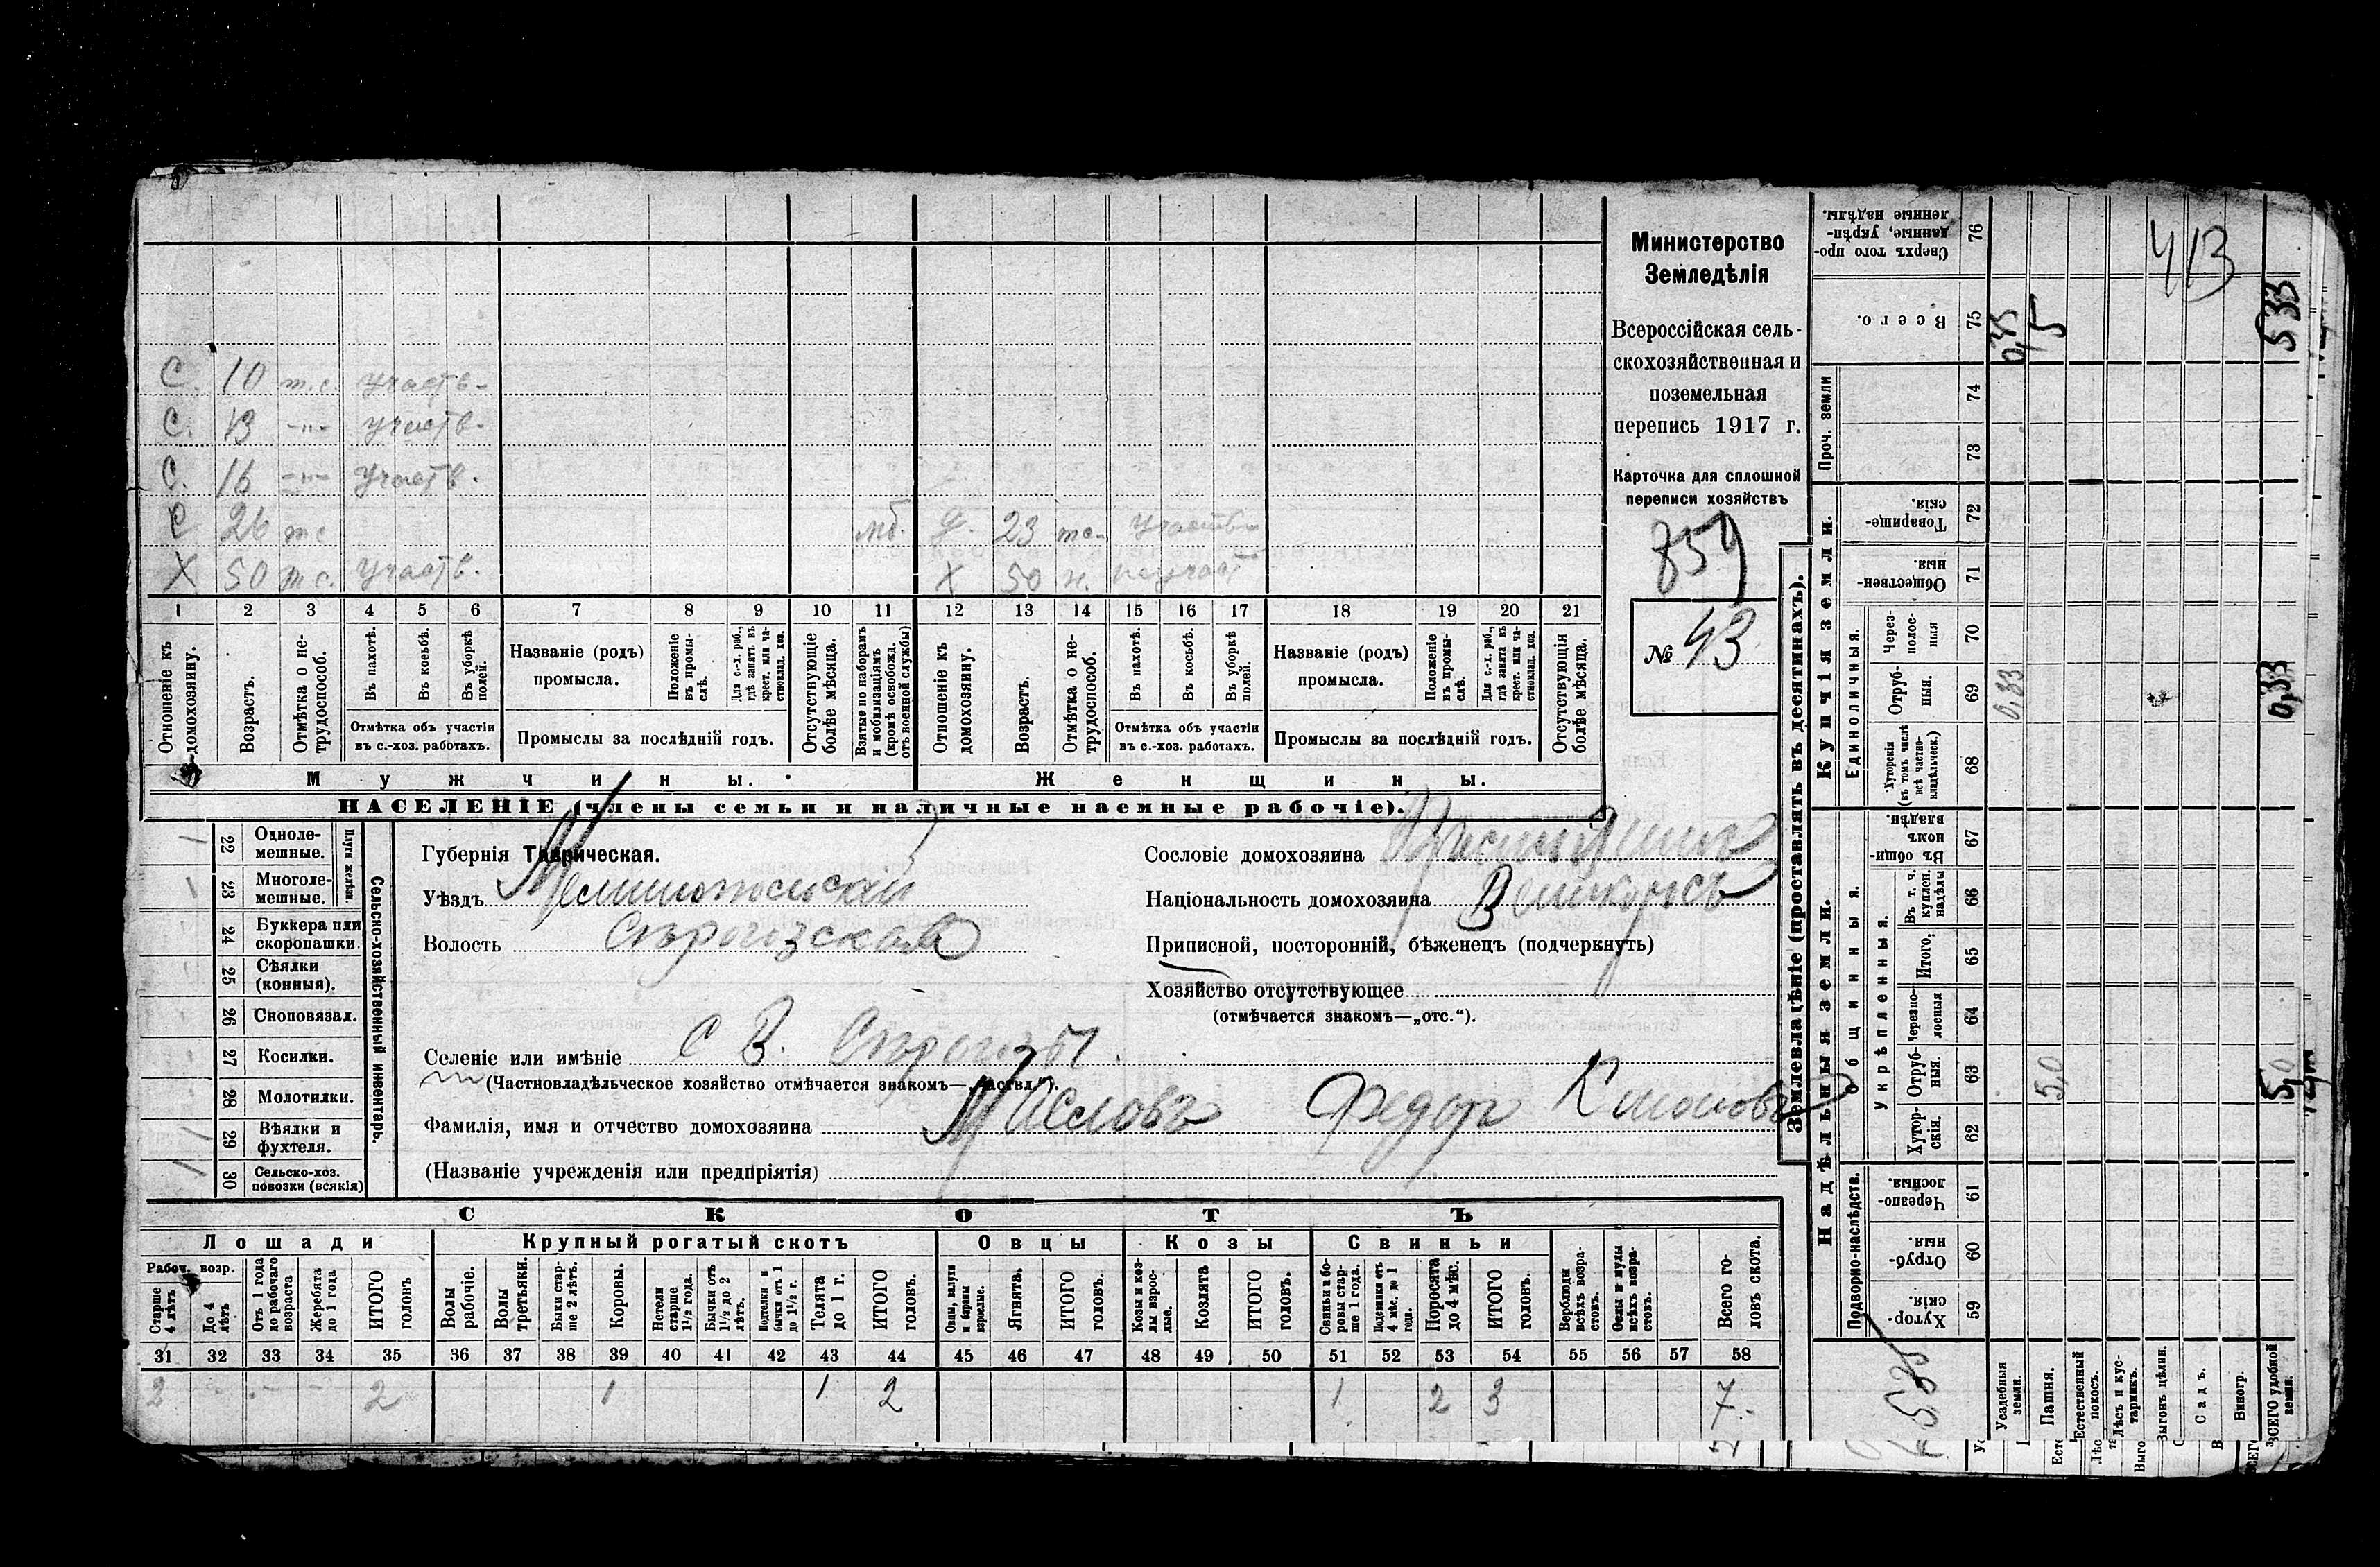 С. 10 т.с. участв.
С. 13 -"- участв.
С. 16 -"- участв.
С 26 тс мб. Д. 23 тс. участв.
Х 50 т с. участв. Х 50 н. неучаст
1 2 3 4 5 6 7 8 9 10 11 12 13 14 15 16 17 18 19 20 21
Отношеніе къ домохозяину.
Возрастъ.
Отмѣтка о нетрудоспособ.
Въ пахотѣ.
Въ косьбѣ.
Въ уборкѣ полей.
Отмѣтка объ участіи въ с.-хоз. работахъ.
Названіе (родъ) промысла.
Положеніе въ промыслѣ.
Для с.-х. раб., гдѣ занятъ въ крест. или частновлад. хоз.
Промыслы за послѣдній годъ.
Отсутствующіе болѣе мѣсяца.
Взятые по наборамъ и мобилизаціямъ (кромѣ освобожд. отъ военной службы)
Отношеніе къ домохозяину.
Возрастъ.
Отмѣтка о нетрудоспособ.
Въ пахотѣ.
Въ косьбѣ.
Въ уборкѣ полей.
Отмѣтка объ участіи въ с.-хоз. работахъ.
Названіе (родъ) промысла.
Положеніе въ промыслѣ.
Для с.-х. раб., гдѣ занята въ крест. или частновлад. хоз.
Промыслы за послѣдній годъ.
Отсутствующія болѣе мѣсяца.
Мужчины. Женщины.
НАСЕЛЕНІЕ (члены семьи и наличные наемные рабочіе).
Министерство
Земледѣлія
Всероссійская сель-
скохозяйственная и
поземельная
перепись 1917 г.
Карточка для сплошной
переписи хозяйствъ
859
№ 43
22 Одноле-мешные.
23 Многоле-мешные.
Плуги желѣзн.
24 Буккера или скоропашки.
25 Сѣялки (конныя).
26 Сноповязал.
27 Косилки.
28 Молотилки.
29 Вѣялки и фухтеля.
30 Сельско-хоз. повозки (всякія)
Сельско-хозяйственный инвентарь.
Губернія Таврическая.
Уѣздъ Мелитопольскій
Волость Сѣрогозская
Селеніе или имѣніе с В. Сѣрогозы.
(Частновладѣльческое хозяйство отмѣчается знакомъ—„частвл.“).
Фамилія, имя и отчество домохозяина Масловъ Федоръ
(Названіе учрежденія или предпріятія)
Сословіе домохозяина Крестьянинъ
Національность домохозяина Великорсъ
Приписной, посторонній, бѣженецъ (подчеркнуть)
Хозяйство отсутствующее
(отмѣчается знакомъ—„отс.“).
СКОТЪ
Лошади Крупный рогатый скотъ Овцы Козы Свиньи
Рабоч. возр.
Старше 4 лѣтъ
До 4 лѣтъ
Отъ 1 года до рабочаго возраста
Жеребята до 1 года
ИТОГО головъ
Волы рабочіе.
Волы третьяки.
Быки старше 2 лѣтъ.
Коровы.
Нетели старше 1½ года.
Бычки отъ 1½ до 2 лѣтъ.
Подтелки и бычки отъ 1 до 1½ г.
Телята до 1 г.
ИТОГО головъ.
Овцы, валухи и бараны взрослые.
Ягнята.
ИТОГО головъ.
Козы и козлы взрослые.
Козлята
ИТОГО головъ.
Свиньи и боровы старше 1 года.
Подсвинки отъ 4 мѣс. до 1 года.
Поросята до 4 мѣс.
ИТОГО головъ.
Верблюды всѣхъ возрастовъ.
Ослы и мулы всѣхъ возрастовъ.
Всего головъ скота.
31 32 33 34 35 36 37 38 39 40 41 42 43 44 45 46 47 48 49 50 51 52 53 54 55 56 57 58
2 - - - 2 1 1 2 1 2 3 7.
Землевладѣніе (проставлять въ десятинахъ).
Надѣльныя земли. Купчія земли.
Сверхъ того проданные, укрѣпленные надѣлы. 76
Всего. 75 0,35 5 5 33
413
Проч. земли 74 73
Товарищескія. 72
Общественныя 71
Единоличныя.
Черезполосныя 70
Отрубныя. 69 0,33 0,33
Хуторскія (въ томъ числѣ всѣ частновладѣльческ.) 68
Общинныя.
Въ общинномъ владѣн. 67
Укрѣпленныя.
Въ т. ч. куплен. надѣлы 66
Итого. 65
Черезполосныя 64
Отрубныя. 63 5,0 5,0
Хуторскія. 62
Подворно-наслѣдств.
Черезполосныя. 61
Отрубныя. 60
Хуторскія. 59
Усадебныя земли.
Пашня.
Естественный покосъ.
Лѣсъ и кустарникъ.
Выгонъ цѣлин.
Садъ.
Виногр.
ВСЕГО удобной земли.